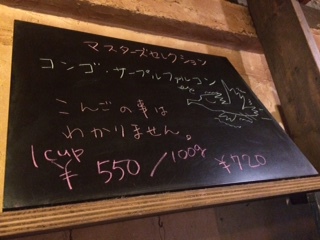 マスターズセレクション
コンゴ・サープルファルコン
こんごの事は
わかりません。
1cup ¥550/100g ¥720